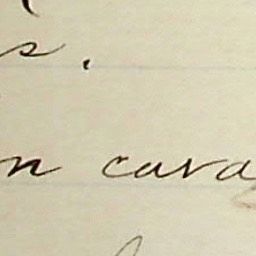 s.
n cava